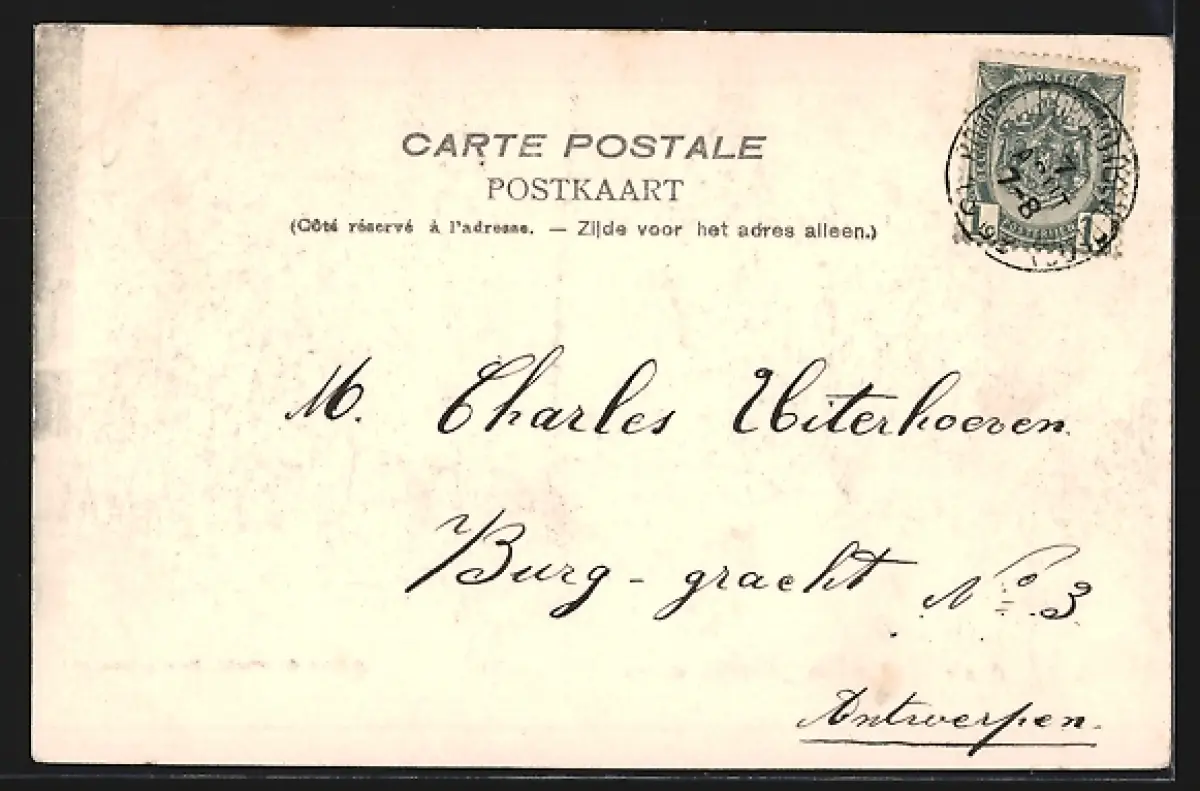 CARTE POSTALE
POSTKAART
(Côté réservé à l'adresse. — Zijde voor het adres alleen.)
POSTES
7
AOUT
7-8
1
M. Charles Uiterhoeven.
Burg-gracht No 3.
Antwerpen.